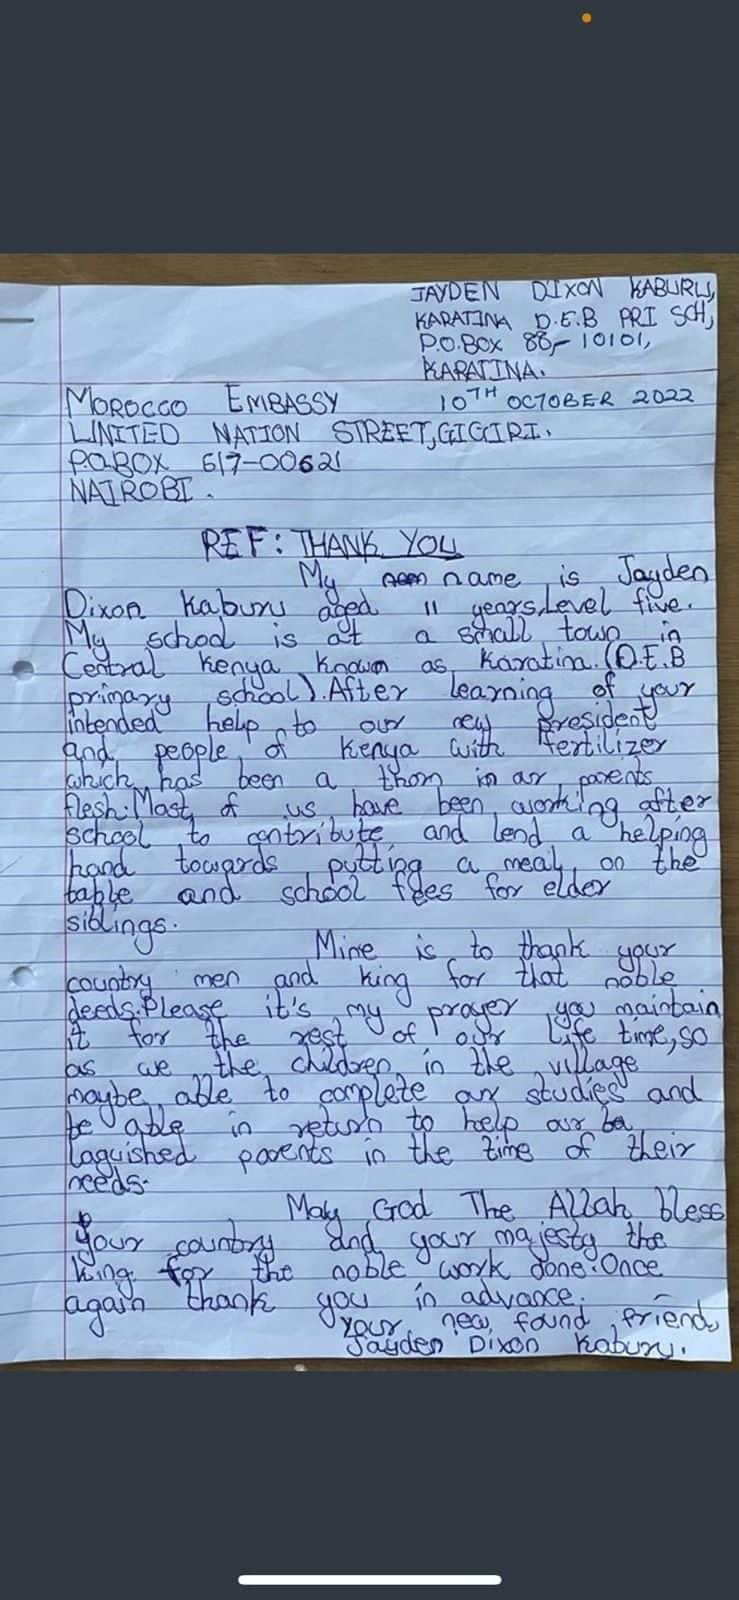 JAYDEN DIXON KABURU,
KARATINA D.E.B PRI SCH,
P.O.BOX 88-10101,
KARATINA.
MOROCCO EMBASSY 10TH OCTOBER 2022
UNITED NATION STREET,GIGIRI.
P.O.BOX 617-00621
NAIROBI.
REF: THANK YOU
My name is Jayden
Dixon Kaburu aged 11 years,Level five.
My school is at a small town in
Central Kenya known as Karatina.(D.E.B
primary school).After learning of your
intended help to our new president
and people of Kenya with fertilizer
which has been a thorn in our parents
flesh.Most of us have been working after
school to contribute and lend a helping
hand towards putting a meal on the
table and school fees for elder
siblings.
Mine is to thank your
country men and king for that noble
deeds.Please it's my prayer you maintain
it for the rest of our life time,so
as we the children in the village
maybe able to complete our studies and
be able in return to help our
laguished parents in the time of their
needs.
May God The Allah bless
your country and your majesty the
king for the noble work done.Once
again thank you in advance.
Your new found friend,
Jayden Dixon Kaburu.